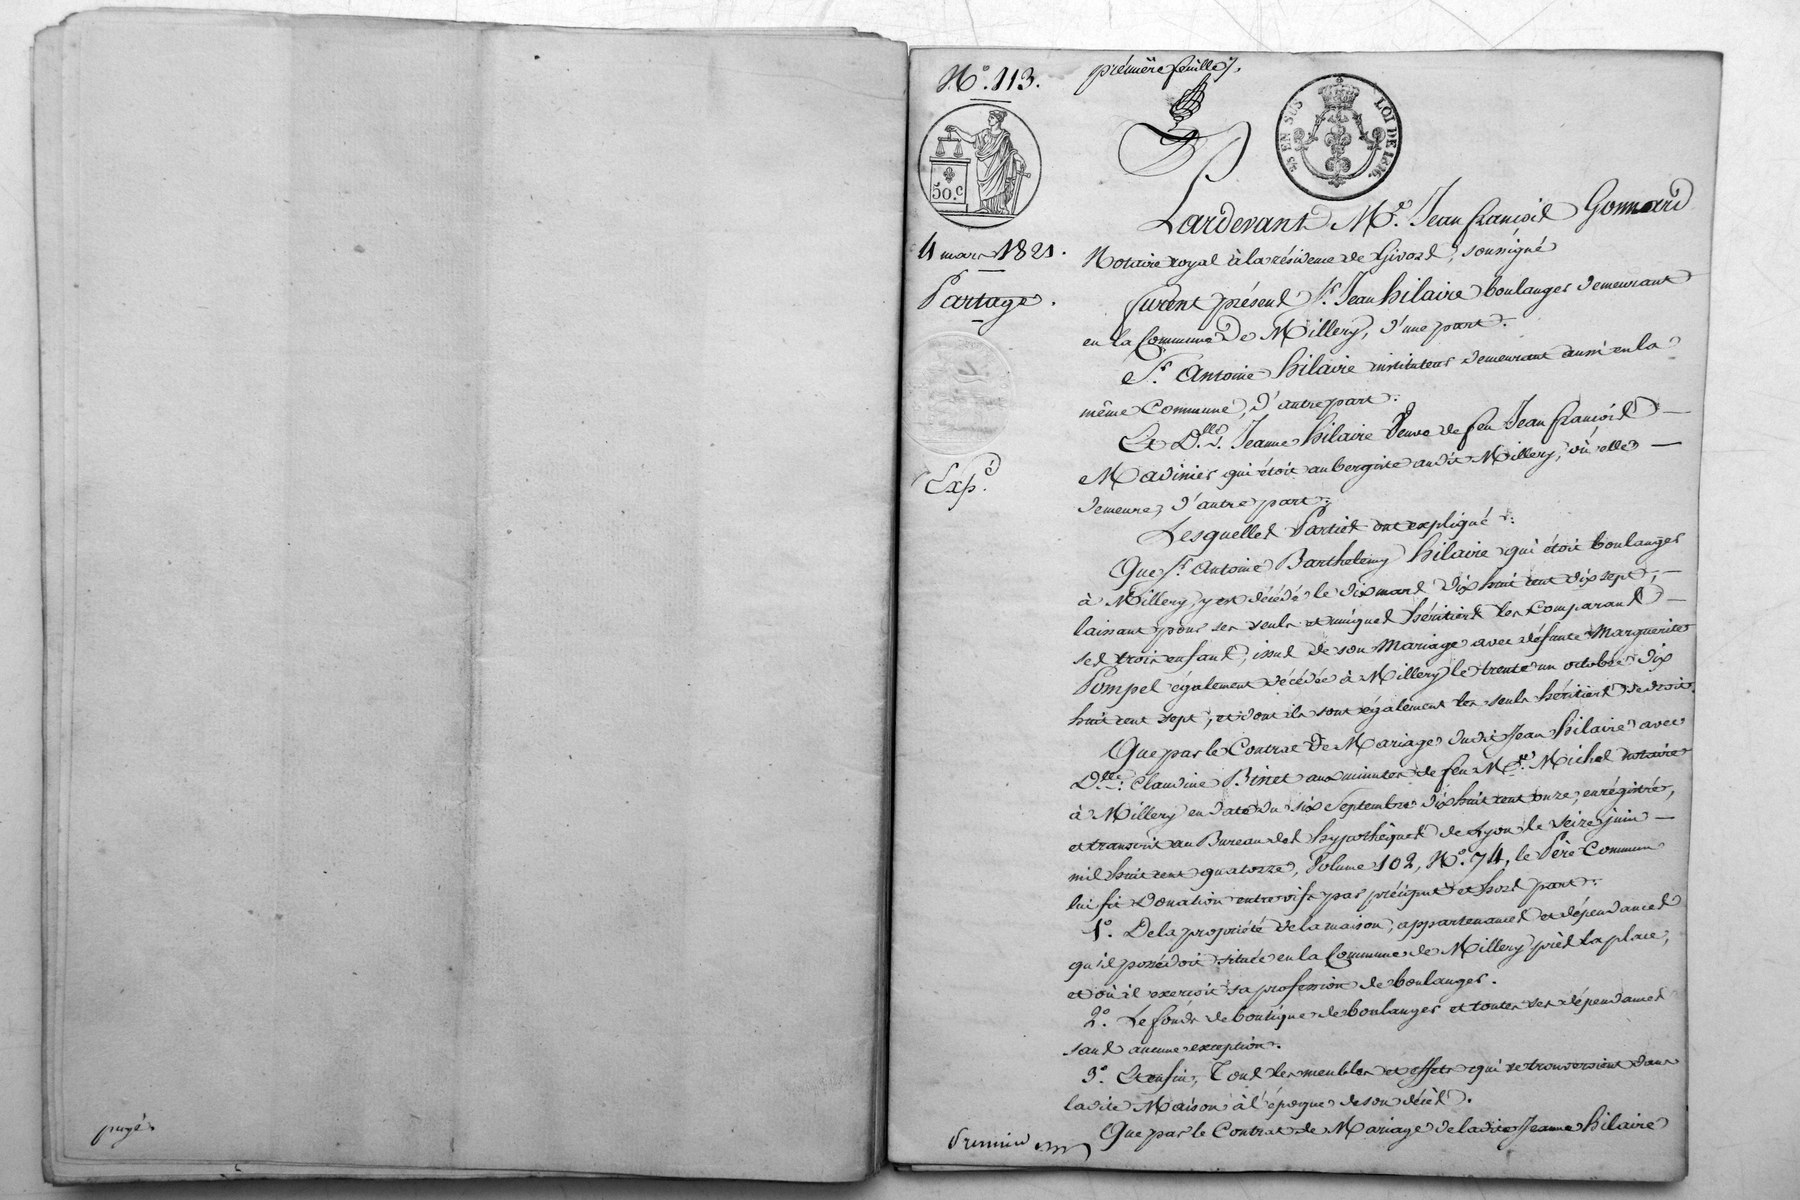 N.° 113.
première feuille
25 EN SUS LOI DE 1816.
50.c
4 mars 1821.
Partage.
Exp.é
Pardevant M.e Jean françois Gonnard
Notaire royal à la résidence de Givors, soussigné
furent présens S.r Jean hilaire boulanger demeurant
en la Commune de Millery, d'une part.
S.r Antoine hilaire instituteur demeurant aussi en la
même Commune, d'autre part.
Et D.lle Jeanne hilaire Veuve de feu Jean françois
Madinier qui étoit aubergiste audit Millery, où elle
demeure, d'autre part.
Lesquelles Parties ont expliqué :
Que S.r Antoine Barthelemy hilaire qui étoit boulanger
à Millery, y est décédé le dix mars dix huit cent dix sept,
laissant pour ses seuls et uniques héritiers les Comparans
ses trois enfans, issus de son Mariage avec défunte Marguerite
Pompel également décédée à Millery le trente un octobre dix
huit cent sept, et dont ils sont également les seuls héritiers de droit.
Que par le Contrat de Mariage dudit Jean hilaire avec
D.lle Claudine Binet aux minutes de feu M.e Michel notaire
à Millery en date du six Septembre dix huit cent onze, enrégistré,
et transcrit au Bureau des hypothèques de Lyon le seize juin
mil huit cent quatorze, Volume 102, N.° 74, le Père Commun
lui fit donation entrevifs par préciput et hors part :
1.° De la propriété de la maison, appartenances et dépendances
qu'il possédoit située en la Commune de Millery près la place,
et où il exerçoit sa profession de boulanger.
2.° Le fonds de boutique de boulanger et toutes ses dépendances
sans aucune exception.
3.° Et enfin, Tous les meubles et effets qui se trouveroient dans
ladite Maison à l'époque de son décès.
Que par le Contrat de Mariage de ladite Jeanne hilaire